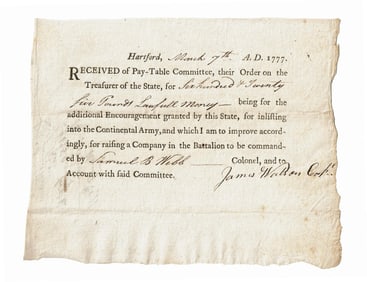 Hartford, March 7th A. D. 1777.
RECEIVED of Pay-Table Committee, their Order on the
Treasurer of the State, for Six hundred & Twenty
five Pounds Lawfull Money — being for the
additional Encouragement granted by this State, for inlisting
into the Continental Army, and which I am to improve accord-
ingly, for raising a Company in the Battalion to be command-
ed by Samuel B Webb Colonel, and to
Account with said Committee.
James Watson Capt.